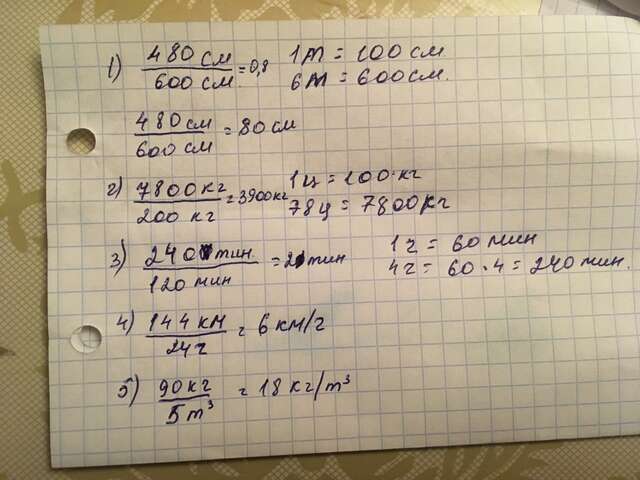 1) 480 см / 600 см = 0,8 1м = 100 см
6м = 600 см.
480 см / 600 см = 80 см
2) 7800 кг / 200 кг = 3900 кг 1ц = 100 кг
78ц = 7800 кг
3) 240 мин / 120 мин = 2 мин 1ч = 60 мин
4ч = 60 · 4 = 240 мин.
4) 144 км / 24ч = 6 км/ч
5) 90 кг / 5 m³ = 18 кг/m³